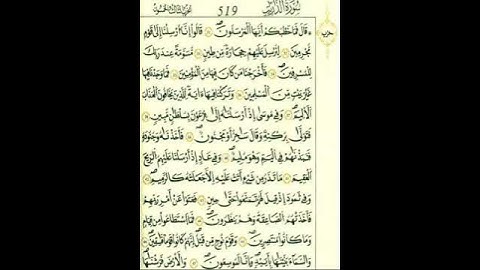 سُورَةُ الذَّارِيَاتِ
519
حزب
قَالَ فَمَا خَطْبُكُمْ أَيُّهَا الْمُرْسَلُونَ ۝ قَالُوا إِنَّا أُرْسِلْنَا إِلَىٰ قَوْمٍ
مُّجْرِمِينَ ۝ لِنُرْسِلَ عَلَيْهِمْ حِجَارَةً مِّن طِينٍ ۝ مُّسَوَّمَةً عِندَ رَبِّكَ
لِلْمُسْرِفِينَ ۝ فَأَخْرَجْنَا مَن كَانَ فِيهَا مِنَ الْمُؤْمِنِينَ ۝ فَمَا وَجَدْنَا فِيهَا
غَيْرَ بَيْتٍ مِّنَ الْمُسْلِمِينَ ۝ وَتَرَكْنَا فِيهَا ءَايَةً لِّلَّذِينَ يَخَافُونَ الْعَذَابَ
الْأَلِيمَ ۝ وَفِي مُوسَىٰ إِذْ أَرْسَلْنَٰهُ إِلَىٰ فِرْعَوْنَ بِسُلْطَٰنٍ مُّبِينٍ ۝
فَتَوَلَّىٰ بِرُكْنِهِ وَقَالَ سَٰحِرٌ أَوْ مَجْنُونٌ ۝ فَأَخَذْنَٰهُ وَجُنُودَهُ
فَنَبَذْنَٰهُمْ فِي الْيَمِّ وَهُوَ مُلِيمٌ ۝ وَفِي عَادٍ إِذْ أَرْسَلْنَا عَلَيْهِمُ الرِّيحَ
الْعَقِيمَ ۝ مَا تَذَرُ مِن شَيْءٍ أَتَتْ عَلَيْهِ إِلَّا جَعَلَتْهُ كَالرَّمِيمِ ۝
وَفِي ثَمُودَ إِذْ قِيلَ لَهُمْ تَمَتَّعُوا حَتَّىٰ حِينٍ ۝ فَعَتَوْا عَنْ أَمْرِ رَبِّهِمْ
فَأَخَذَتْهُمُ الصَّٰعِقَةُ وَهُمْ يَنظُرُونَ ۝ فَمَا اسْتَطَٰعُوا مِن قِيَامٍ
وَمَا كَانُوا مُنتَصِرِينَ ۝ وَقَوْمَ نُوحٍ مِّن قَبْلُ إِنَّهُمْ كَانُوا قَوْمًا فَٰسِقِينَ ۝
وَالسَّمَاءَ بَنَيْنَٰهَا بِأَيْيدٍ وَإِنَّا لَمُوسِعُونَ ۝ وَالْأَرْضَ فَرَشْنَٰهَا